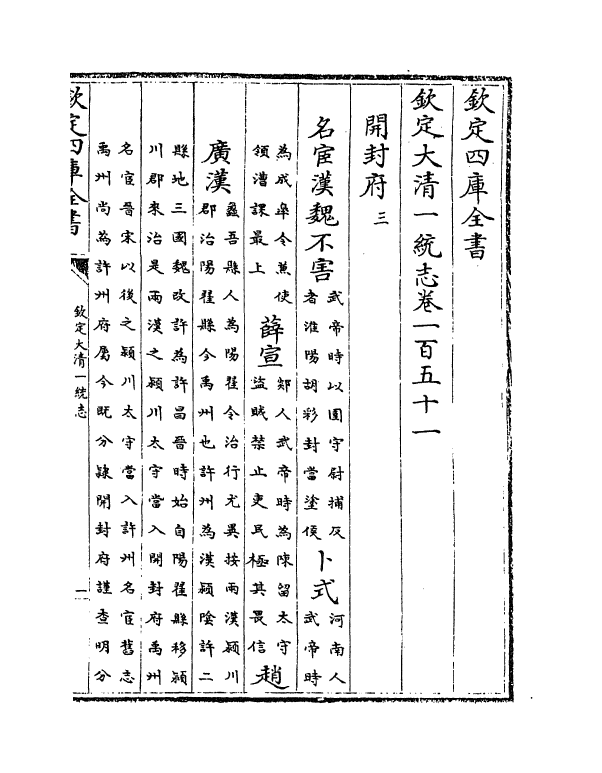 欽定四庫全書
欽定大清一統志卷一百五十一
開封府三
名宦漢魏不害武帝時以圉守尉捕反者淮陽胡彩封當塗侯卜式河南人武帝時
為成臯令兼使領漕課最上薛宣郯人武帝時為陳留太守盜賊禁止吏民極其畏信趙
廣漢蠡吾縣人為陽翟令治行尤異按兩漢潁川郡治陽翟縣今禹州也許州為漢潁陰許二
縣地三國魏改許為許昌晉時始自陽翟縣移潁川郡來治是兩漢之潁川太守當入開封府禹州
名宦晉宋以後之潁川太守當入許州名宦舊志禹州尚為許州府屬今既分隸開封府謹查明分
欽定四庫全書
欽定大清一統志
一